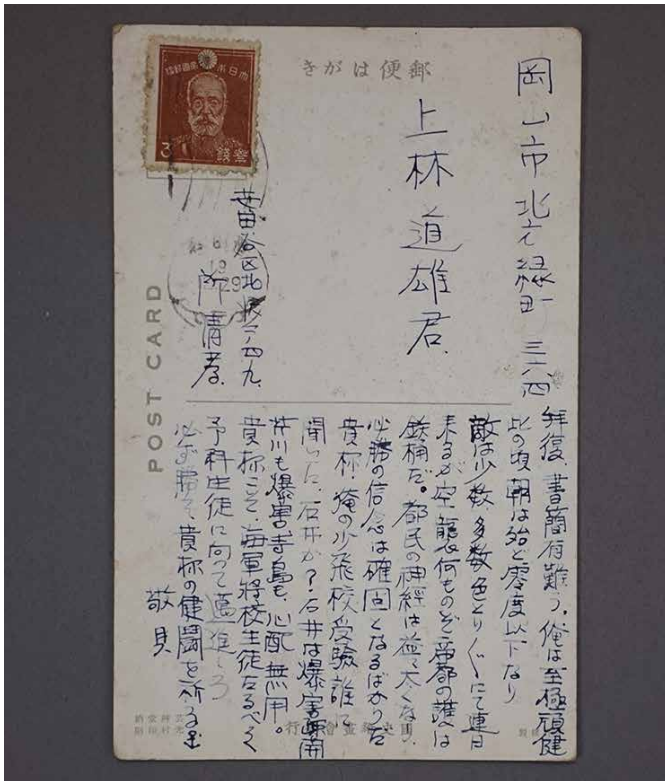 郵便はがき
岡山市北方緑町
上林道雄君.
世田谷区北
清孝.
POST CARD
拝復、書簡有難う。俺は至極頑健
此の頃朝は殆ど零度以下なり
敵は少数多数色とりぐにて連日
来るが空襲何ものぞ帝都の護は
鉄桶だ。都民の神経は益々太くなり
必勝の信念は確固となるばかりだ
貴様、俺の少飛校受験誰に
聞いた、石井か?石井は爆害
芥川も爆害寺島も、心配無用。
貴様こそ、海軍将校生徒たるべく
予科生徒に向って邁進しろ
必ず勝つ貴様の健闘を祈る
敬具